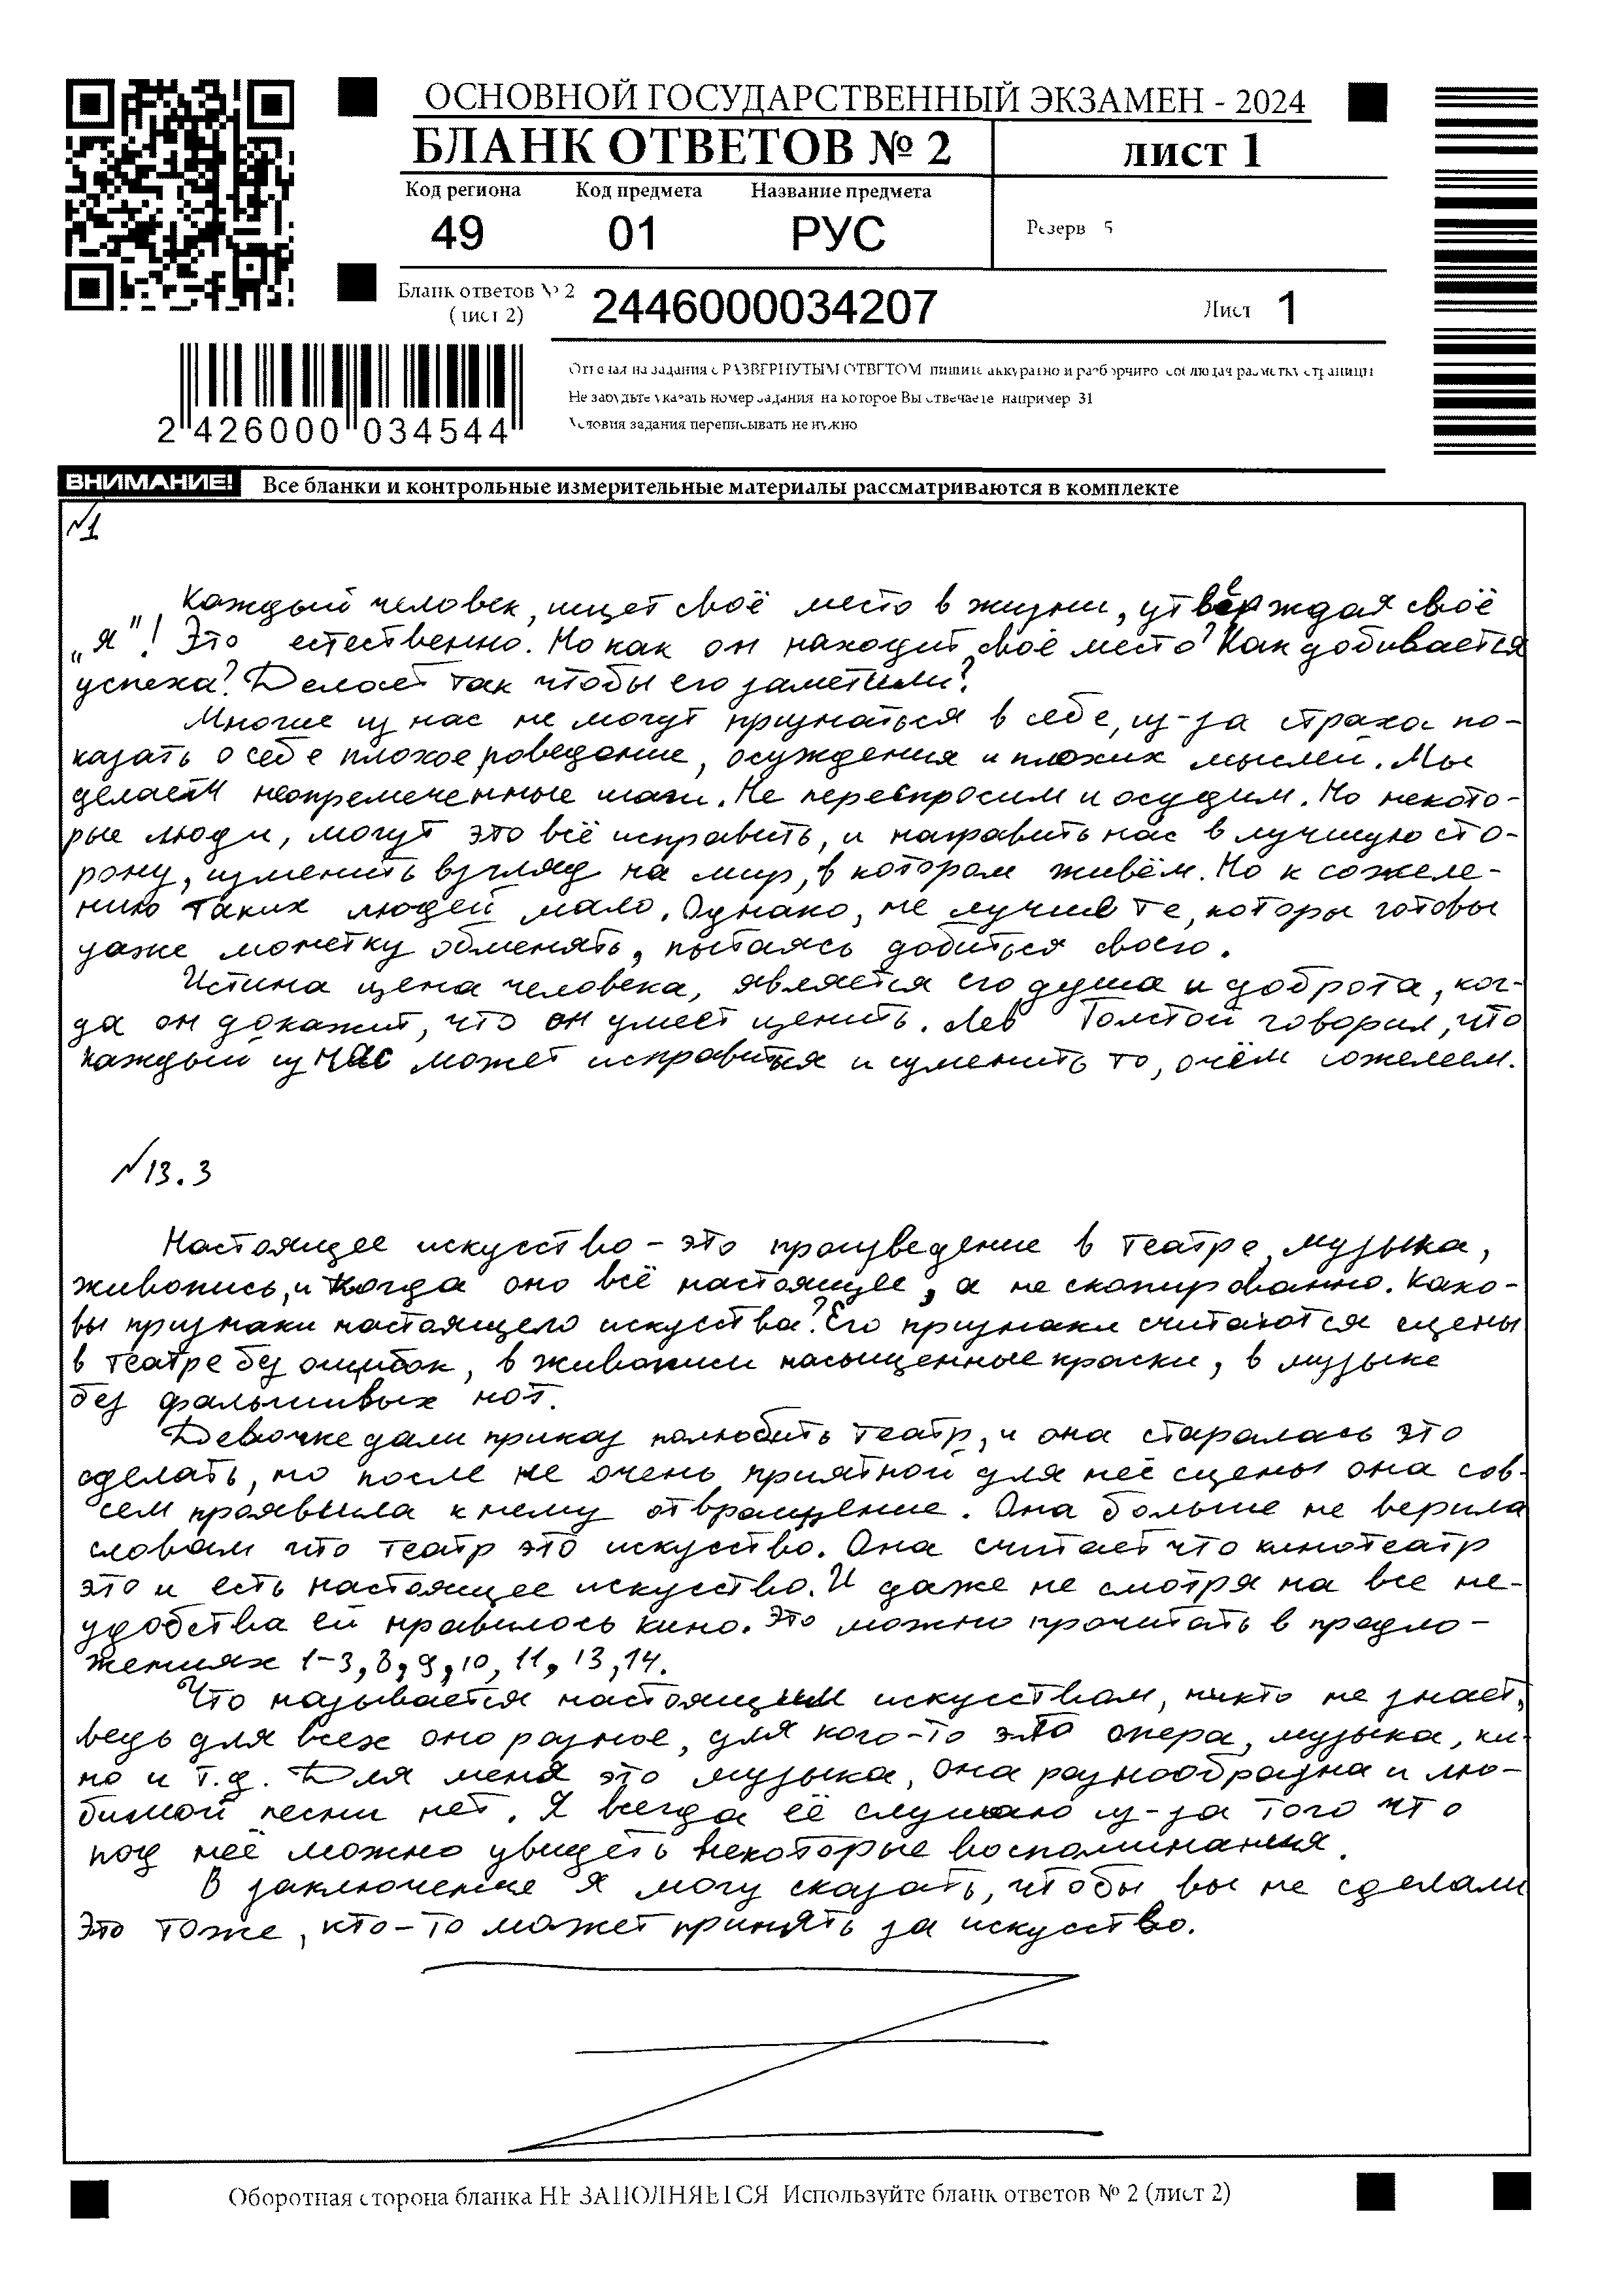 ОСНОВНОЙ ГОСУДАРСТВЕННЫЙ ЭКЗАМЕН - 2024
БЛАНК ОТВЕТОВ № 2
ЛИСТ 1
Код региона Код предмета Название предмета
49 01 РУС
Резерв - 5
Бланк ответов № 2
(лист 2)
2446000034207
Лист 1
2 426000 034544
Отвечая на задания с РАЗВЕРНУТЫМ ОТВЕТОМ пишите аккуратно и разборчиво соблюдая разметку страницы
Не забудьте указать номер задания на которое Вы отвечаете например 31
Условия задания переписывать не нужно
ВНИМАНИЕ! Все бланки и контрольные измерительные материалы рассматриваются в комплекте
№1
Каждый человек, ищет своё место в жизни, утверждая своё
„я"! Это естественно. Но как он находит своё место? Как добивается
успеха? Делает так чтобы его заметили?
Многие из нас не могут признаться в себе, из-за страха по-
казать о себе плохое поведение, осуждения и плохих мыслей. Мы
делаем неопремеченные шаги. Не переспросим и осудим. Но некото-
рые люди, могут это всё исправить, и направить нас в лучшую сто-
рону, изменить взгляд на мир, в котором живём. Но к сожеле-
нию таких людей мало. Однако, не лучше те, которы готовы
даже монетку обменять, пытаясь добиться своего.
Истина цена человека, является его душа и доброта, ког-
да он докажит, что он умеет ценить. Лев Толстой говорил, что
каждый из нас может исправится и изменить то, очём сожелеем.
№13.3
Настоящее искусство – это произведение в театре, музыка,
живопись, и когда оно всё настоящее, а не скопированно. Како-
вы признаки настоящего искуства? Его признаки считаются сцены
в театре без ошибок, в живописи насыщенные краски, в музыке
без фальшивых нот.
Девочке дали приказ полюбить театр, и она старалась это
сделать, но после не очень приятной для неё сцены она сов-
сем проявила к нему отвращение. Она больше не верила
словам что театр это искуство. Она считает что кинотеатр
это и есть настоящее искуство. И даже не смотря на все не-
удобства ей нравилось кино. Это можно прочитать в предло-
жениях 1-3, 8, 9, 10, 11, 13, 14.
Что называется настоящим искуством, никто не знает,
ведь для всех оно разное, для кого-то это опера, музыка, ки-
но и т.д. Для меня это музыка, она разнообразна и лю-
бимой песни нет. Я всегда её слушаю из-за того что
под неё можно увидеть некоторые воспоминания.
В заключение я могу сказать, чтобы вы не сделали
это тоже, кто-то может принять за искусство.
Оборотная сторона бланка НЕ ЗАПОЛНЯЕТСЯ Используйте бланк ответов № 2 (лист 2)